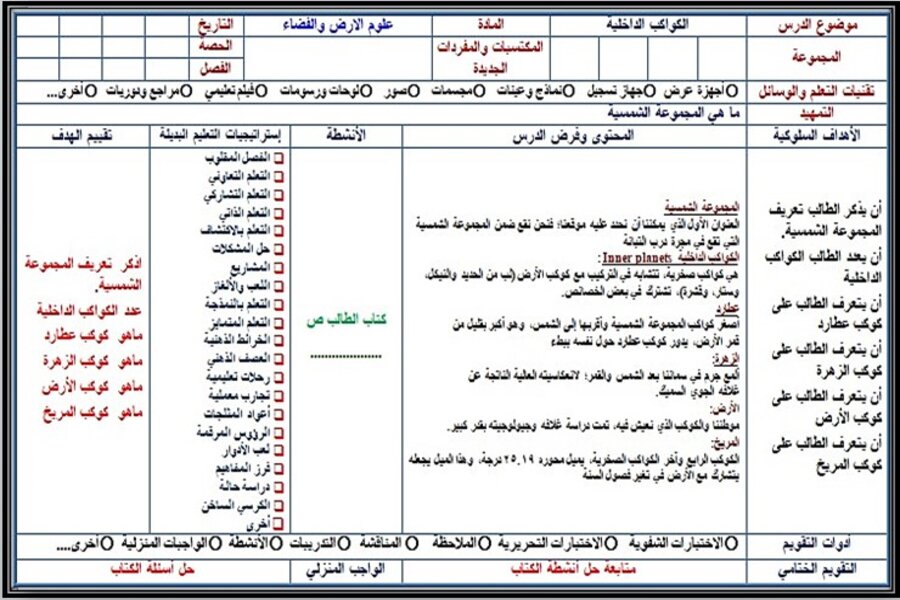 موضوع الدرس الكواكب الداخلية المادة علوم الارض والفضاء التاريخ
المجموعة المكتسبات والمفردات الجديدة الحصة
الفصل
تقنيات التعلم والوسائل أجهزة عرض جهاز تسجيل نماذج وعينات مجسمات صور لوحات ورسومات فيلم تعليمي مراجع ودوريات أخرى...
التمهيد ما هي المجموعة الشمسية
الأهداف السلوكية المحتوى وفرض الدرس الأنشطة إستراتيجيات التعليم البديلة تقييم الهدف
أن يذكر الطالب تعريف
المجموعة الشمسية.
أن يعدد الطالب الكواكب
الداخلية
أن يتعرف الطالب على
كوكب عطارد
أن يتعرف الطالب على
كوكب الزهرة
أن يتعرف الطالب على
كوكب الأرض
أن يتعرف الطالب على
كوكب المريخ
المجموعة الشمسية
العنوان الأول الذي يمكننا أن نحدد عليه موقعنا؛ فنحن نقع ضمن المجموعة الشمسية
التي تقع في مجرة درب التبانة
الكواكب الداخلية Inner planets:
هي كواكب صخرية، تتشابه في التركيب مع كوكب الأرض (لب من الحديد والنيكل،
وستار، وقشرة)، تشترك في بعض الخصائص.
عطارد
أصغر كواكب المجموعة الشمسية وأقربها إلى الشمس، وهو أكبر بقليل من
قمر الأرض، يدور كوكب عطارد حول نفسه ببطء
الزهرة:
ألمع جرم في سمائنا بعد الشمس والقمر؛ لانعكاسيته العالية الناتجة عن
غلافه الجوي السميك.
الأرض:
موطننا والكوكب الذي نعيش فيه، تمت دراسة غلافه وجيولوجيته بقدر كبير.
المريخ:
الكوكب الرابع وآخر الكواكب الصخرية، يميل محوره ٢٥.١٩ درجة، وهذا الميل يجعله
يتشارك مع الأرض في تغير فصول السنة
كتاب الطالب ص
....................
الفصل المقلوب
التعلم التعاوني
التعلم التشاركي
التعلم الذاتي
التعلم بالاكتشاف
حل المشكلات
المشاريع
اللعب والألغاز
التعلم بالنمذجة
التعلم المتمايز
الخرائط الذهنية
العصف الذهني
رحلات تعليمية
تجارب معملية
أعواد المثلجات
الرؤوس المرقمة
لعب الأدوار
فرز المفاهيم
دراسة حالة
الكرسي الساخن
أخرى
اذكر تعريف المجموعة
الشمسية.
عدد الكواكب الداخلية
ماهو كوكب عطارد
ماهو كوكب الزهرة
ماهو كوكب الأرض
ماهو كوكب المريخ
أدوات التقويم الاختبارات الشفوية الاختبارات التحريرية الملاحظة المناقشة التدريبات الأنشطة الواجبات المنزلية أخرى....
التقويم الختامي متابعة حل أنشطة الكتاب الواجب المنزلي حل أسئلة الكتاب